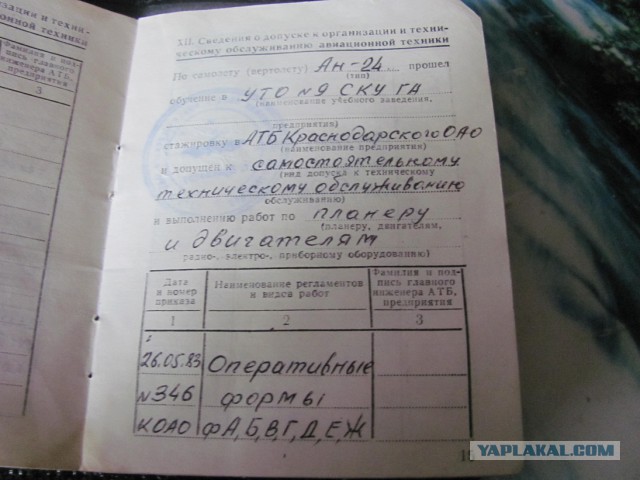 зации и техни-
ионной техники
Фамилия и под-
пись главного
инженера АТБ,
предприятия
3
XII. Сведения о допуске к организации и техни-
ческому обслуживанию авиационной техники
По самолету (вертолету) Ан-24 прошел
(тип)
обучение в УТО №9 СКУ ГА
(наименование учебного заведения,
предприятия)
стажировку в АТБ Краснодарского ОАО
(наименование предприятия)
и допущен к самостоятельному
(вид допуска к техническому
техническому обслуживанию
обслуживанию)
и выполнению работ по планеру
(планеру, двигателям,
и двигателям
радио-, электро-, приборному оборудованию)
Дата и номер приказа
Наименование регламентов и видов работ
Фамилия и под-пись главного инженера АТБ, предприятия
1 2 3
26.05.83 Оперативные
№346 формы
КОАО фА,Б,В,Г,Д,Е,Ж
YAPLAKAL.COM